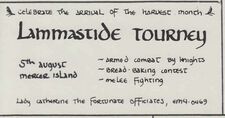 Celebrate the arrival of the harvest month
Lammastide Tourney
5th August
Mercer Island
- armed combat by knights
- bread-baking contest
- melee fighting
Lady Catherine the Fortunate officiates, EM4-0469